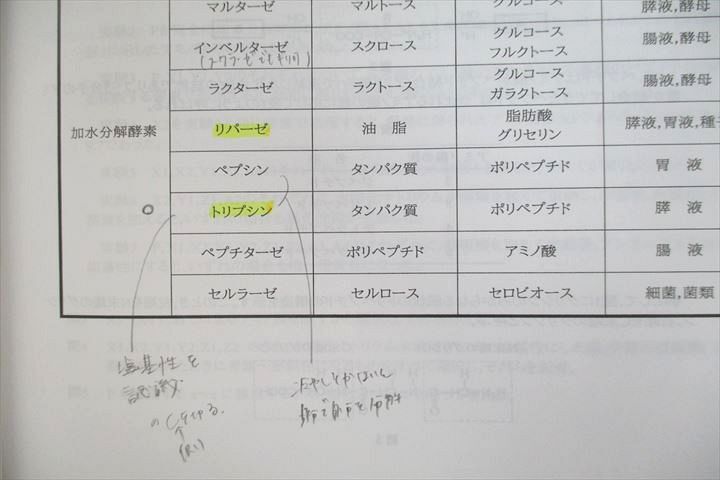 マルターゼ マルトース グルコース 膵液,酵母
インベルターゼ スクロース グルコース フルクトース 腸液,酵母
ラクターゼ ラクトース グルコース ガラクトース 腸液,酵母
加水分解酵素 リパーゼ 油 脂 脂肪酸 グリセリン 膵液,胃液,種子
ペプシン タンパク質 ポリペプチド 胃 液
トリプシン タンパク質 ポリペプチド 膵 液
ペプチターゼ ポリペプチド アミノ酸 腸 液
セルラーゼ セルロース セロビオース 細菌,菌類
塩基性を
認識
のCを切る
(R1)